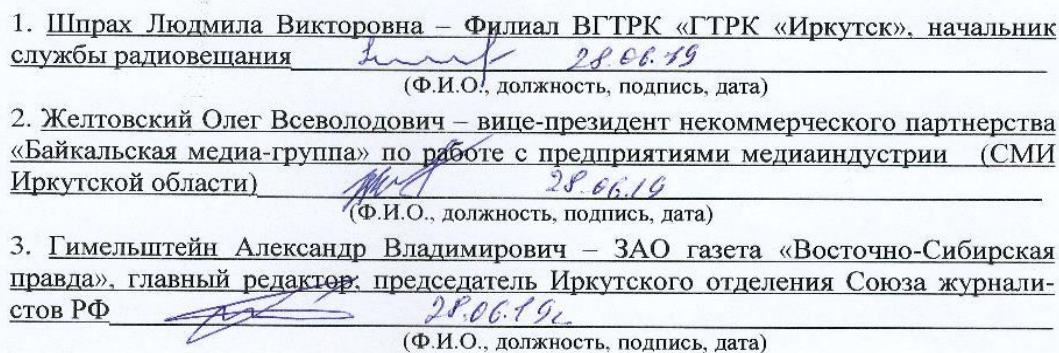 1. Шпрах Людмила Викторовна – Филиал ВГТРК «ГТРК «Иркутск», начальник
службы радиовещания 28.06.19
(Ф.И.О., должность, подпись, дата)
2. Желтовский Олег Всеволодович – вице-президент некоммерческого партнерства
«Байкальская медиа-группа» по работе с предприятиями медиаиндустрии (СМИ
Иркутской области) 28.06.19
(Ф.И.О., должность, подпись, дата)
3. Гимельштейн Александр Владимирович – ЗАО газета «Восточно-Сибирская
правда», главный редактор, председатель Иркутского отделения Союза журнали-
стов РФ 28.06.19г.
(Ф.И.О., должность, подпись, дата)